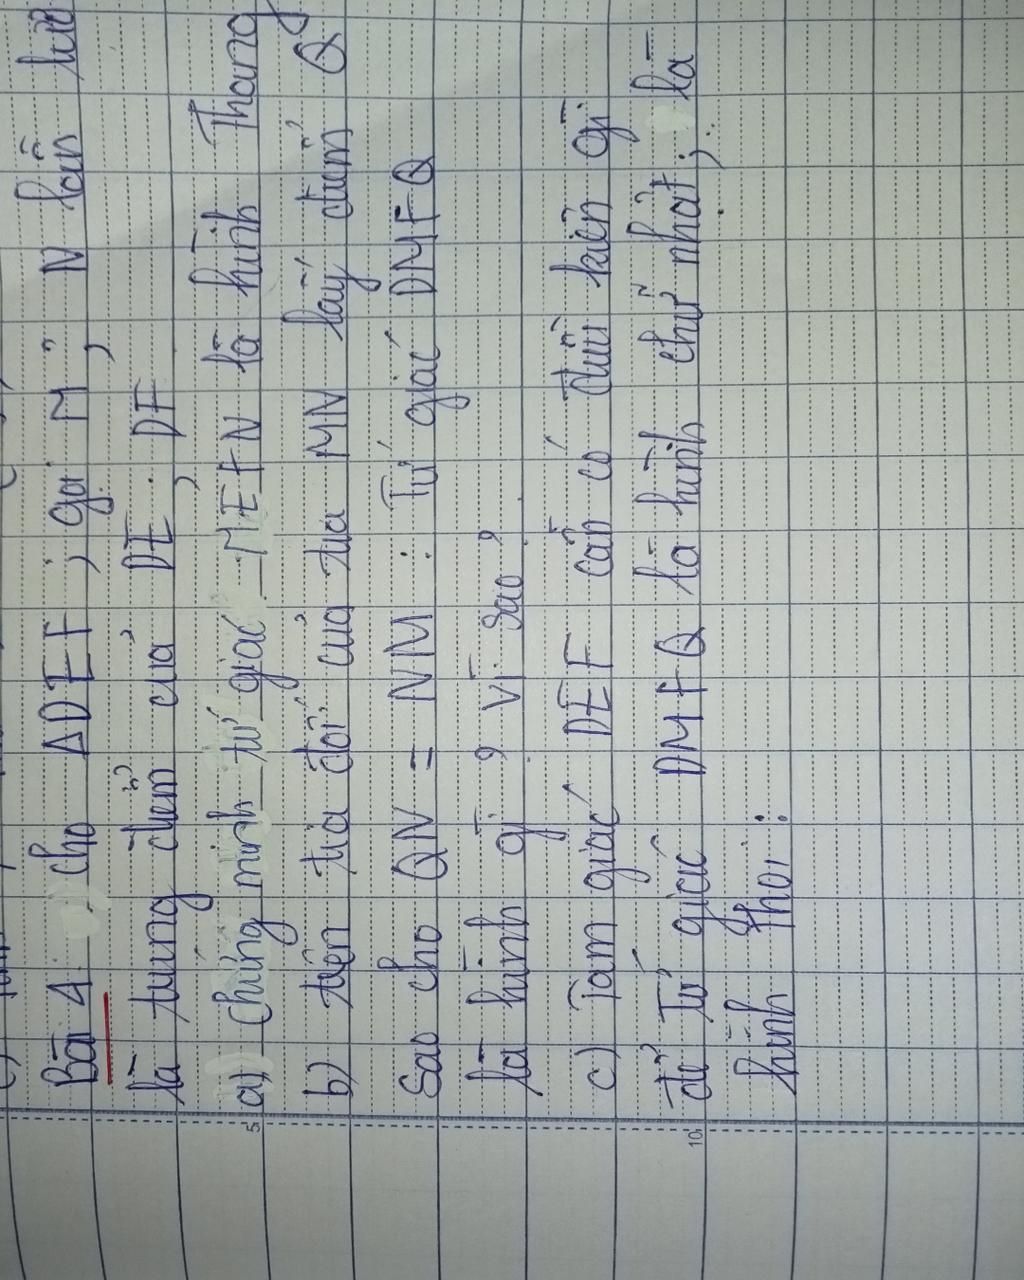 Bài 4 : cho ΔDEF ; gọi M , N lần lượt
là trung điểm của DE ; DF
a) chứng minh tứ giác MEFN là hình Thang
b) trên tia đối của tia MN lấy điểm Q
Sao cho QN = NM : Tứ giác DMFQ
là hình gì ? Vì sao ?
c) Tam giác DEF cần có điều kiện gì
để Tứ giác DMFQ là hình chữ nhật ; là
hình thoi :
5
10